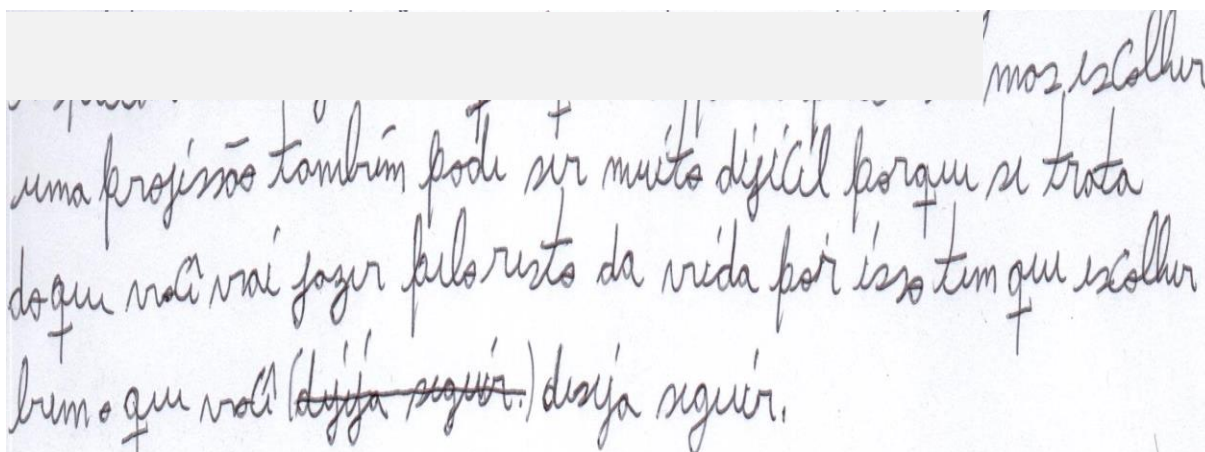 mos escolher
uma profissão também pode ser muito difícil porque se trata
doque você vai fazer pelo resto da vida por isso tem que escolher
bem o que você (dejeja seguir.) deseja seguir.